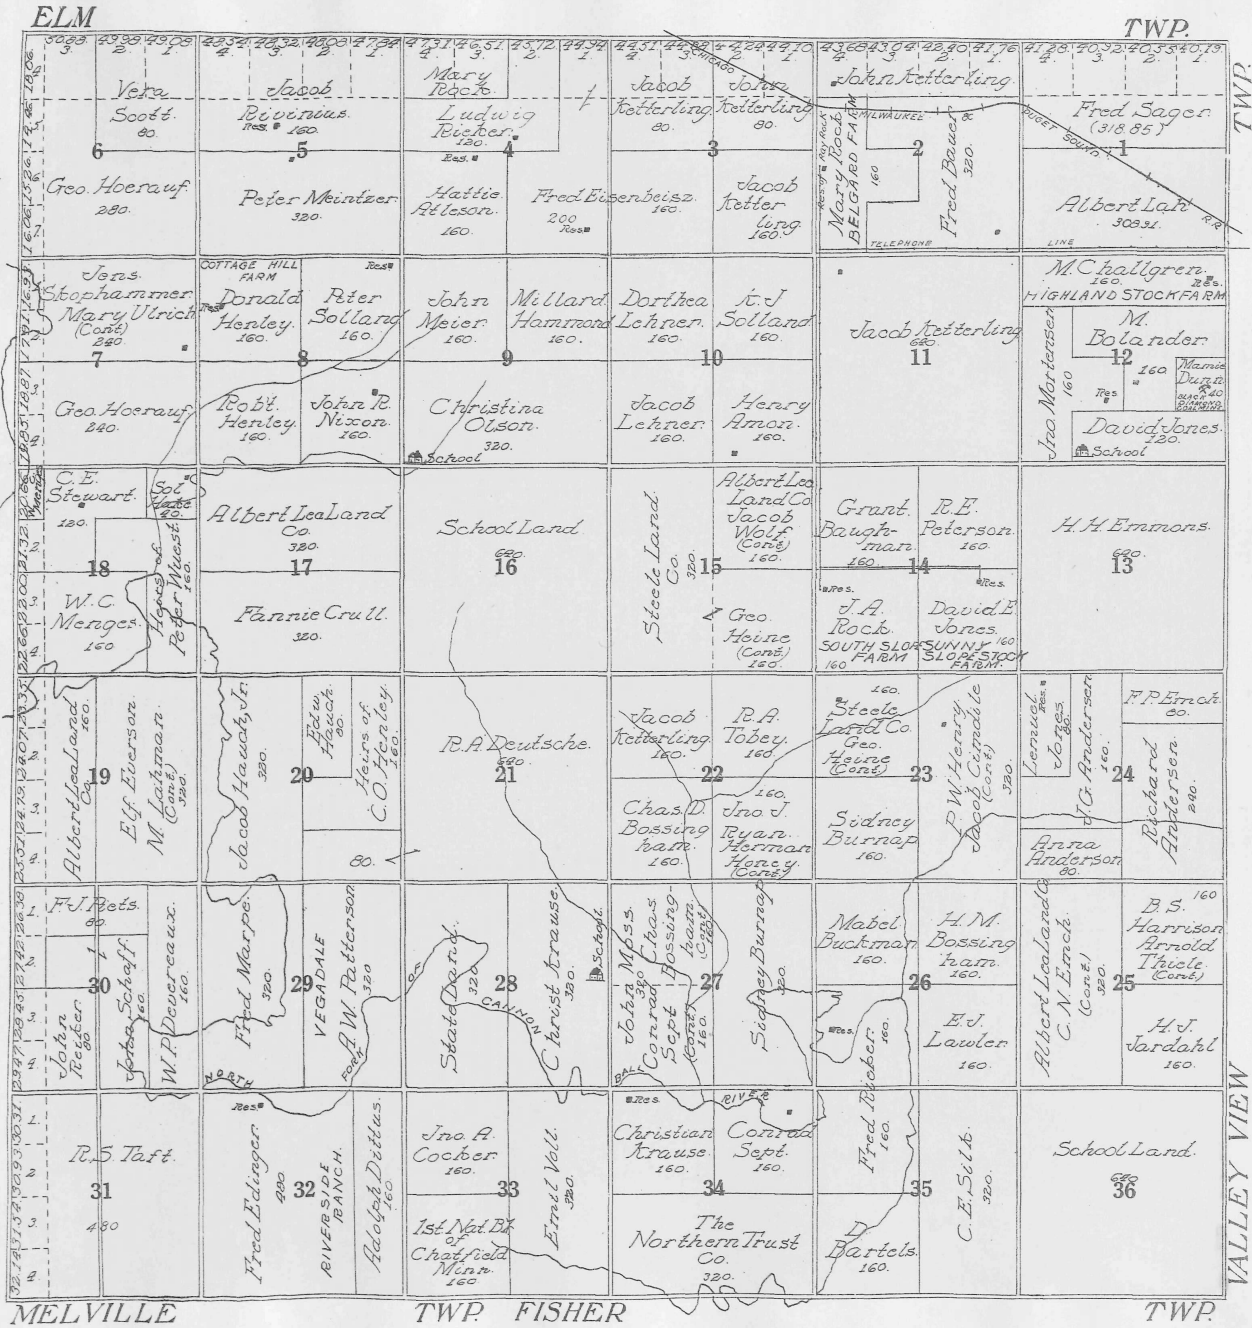 ELM
TWP.
TWP.
50.88 49.98 49.08
3. 2. 1.
43.68 43.04 42.40 41.76
4. 3. 2. 1.
41.28 40.92 40.55 40.19
4. 3. 2. 1.
CHICAGO
MILWAUKEE
&
PUGET SOUND
R.R.
TELEPHONE
LINE
Vera
Scott.
80.
6
Geo. Hoerauf.
280.
Jacob
Rivinius.
Res. 160.
5
Peter Meintzer
320.
Mary
Rock.
Ludwig
Rieker.
120.
Res.
4
Hattie
Atleson.
160.
Fred Eisenbeisz.
200
Res.
160.
Jacob
Ketterling
80.
John
Ketterling
80.
3
Jacob
Ketter
ling
160.
John Ketterling.
Res. of Ray Rock
Mary Rock
BELGARD FARM
160
2
Fred Bauer
320.
Fred Sager
(318.85)
1
Albert Lah
308.31.
Jens.
Stophammer.
Mary Ulrich
(Cont)
240.
7
Geo. Hoerauf
240.
COTTAGE HILL
FARM
Res.
Donald
Henley.
160.
Res.
Peter
Solland
160.
8
Rob't.
Henley.
160.
John R.
Nixon.
160.
John
Meier.
160.
Millard.
Hammond
160.
9
Christina
Olson.
320.
School
Dorthea
Lehner.
160.
K.J
Solland.
160.
10
Jacob
Lehner.
160.
Henry
Amon.
160.
Jacob Ketterling
640.
11
M. Challgren.
160. Res.
HIGHLAND STOCK FARM
Jno Mortensen
160
M.
Bolander.
12
160
Res.
Mamie
Dunn.
40
BLACK
DIAMOND
COAL MINE
David Jones.
120.
School
Menges
C. E.
Stewart.
120.
Sol
40.
18
W.C.
Menges.
160
Heirs of
Peter Wuest.
160.
Albert Lea Land
Co.
320.
17
Fannie Crull.
320.
School Land
640.
16
Steele Land
Co.
320.
15
Albert Lea
Land Co.
Jacob
Wolf.
(Cont)
160.
Geo.
Heine
(Cont)
160.
Grant.
Baugh-
man.
160.
R.E.
Peterson.
160.
14
Res.
J.A.
Rock.
SOUTH SLOPE
160 FARM
Res.
David E
Jones.
SUNNY 160
SLOPE STOCK
FARM.
H.H. Emmons.
640.
13
Albert Lea Land
Co.
160.
19
Elf. Everson
M. Lahman.
(Cont)
320.
Jacob Hauch, Jr.
320.
20
Edw.
Hauch.
80.
Heirs of
C.O. Henley.
160.
80.
R.A. Deutsche.
640.
21
Jacob
Ketterling.
160.
R.A.
Tobey.
160
22
Chas. D.
Bossing
ham.
160.
160.
Jno J.
Ryan.
Herman
Honey.
(Cont)
160.
Steele
Land Co.
Geo.
Heine
(Cont)
23
Sidney
Burnap
160.
P. W. Henry.
Jacob Cundile
(Cont)
320.
Lemuel
Jones.
Res.
80.
J.G. Andersen.
160.
24
F.P. Emch.
80.
Richard
Andersen.
240.
Anna
Anderson
80.
F.J. Piets.
80.
30
John
Reiker.
80
John Schaff.
160.
W.P. Devereaux.
160.
Fred Marpe.
320.
29
VEGADALE
A.W. Patterson.
320
NORTH
FORK
State Land.
320
28
CANNON
Christ Krause.
320.
School.
John Moss.
320
Conrad
Sept
(Cont)
160.
Chas.
Bossing-
ham.
(Cont)
27
Sidney Burnap
320.
BALL
RIVER
Mabel
Buckman
160.
H.M.
Bossing
ham.
160.
26
Res.
Fred Rieker.
160.
E.J.
Lawler
160.
Albert Lea Land Co
C.N. Emch.
(Cont.)
320.
25
160
B.S.
Harrison
Arnold
Thiele.
(Cont)
H.J.
Jardahl
160.
R.S. Taft.
31
480
Res.
Fred Edinger.
480
32
RIVERSIDE
RANCH.
Adolph Dittus.
160.
Jno. A.
Cocker.
160.
33
1st Nat. Bk
of
Chatfield
Minn.
160
Emil Voll.
320.
Res
Christian
Krause.
160.
Conrad
Sept.
160.
34
The
Northern Trust
Co.
320.
160.
35
Bartels.
160.
C.E. Silk.
320.
School Land.
640
36
VALLEY VIEW
MELVILLE
TWP.
FISHER
TWP.